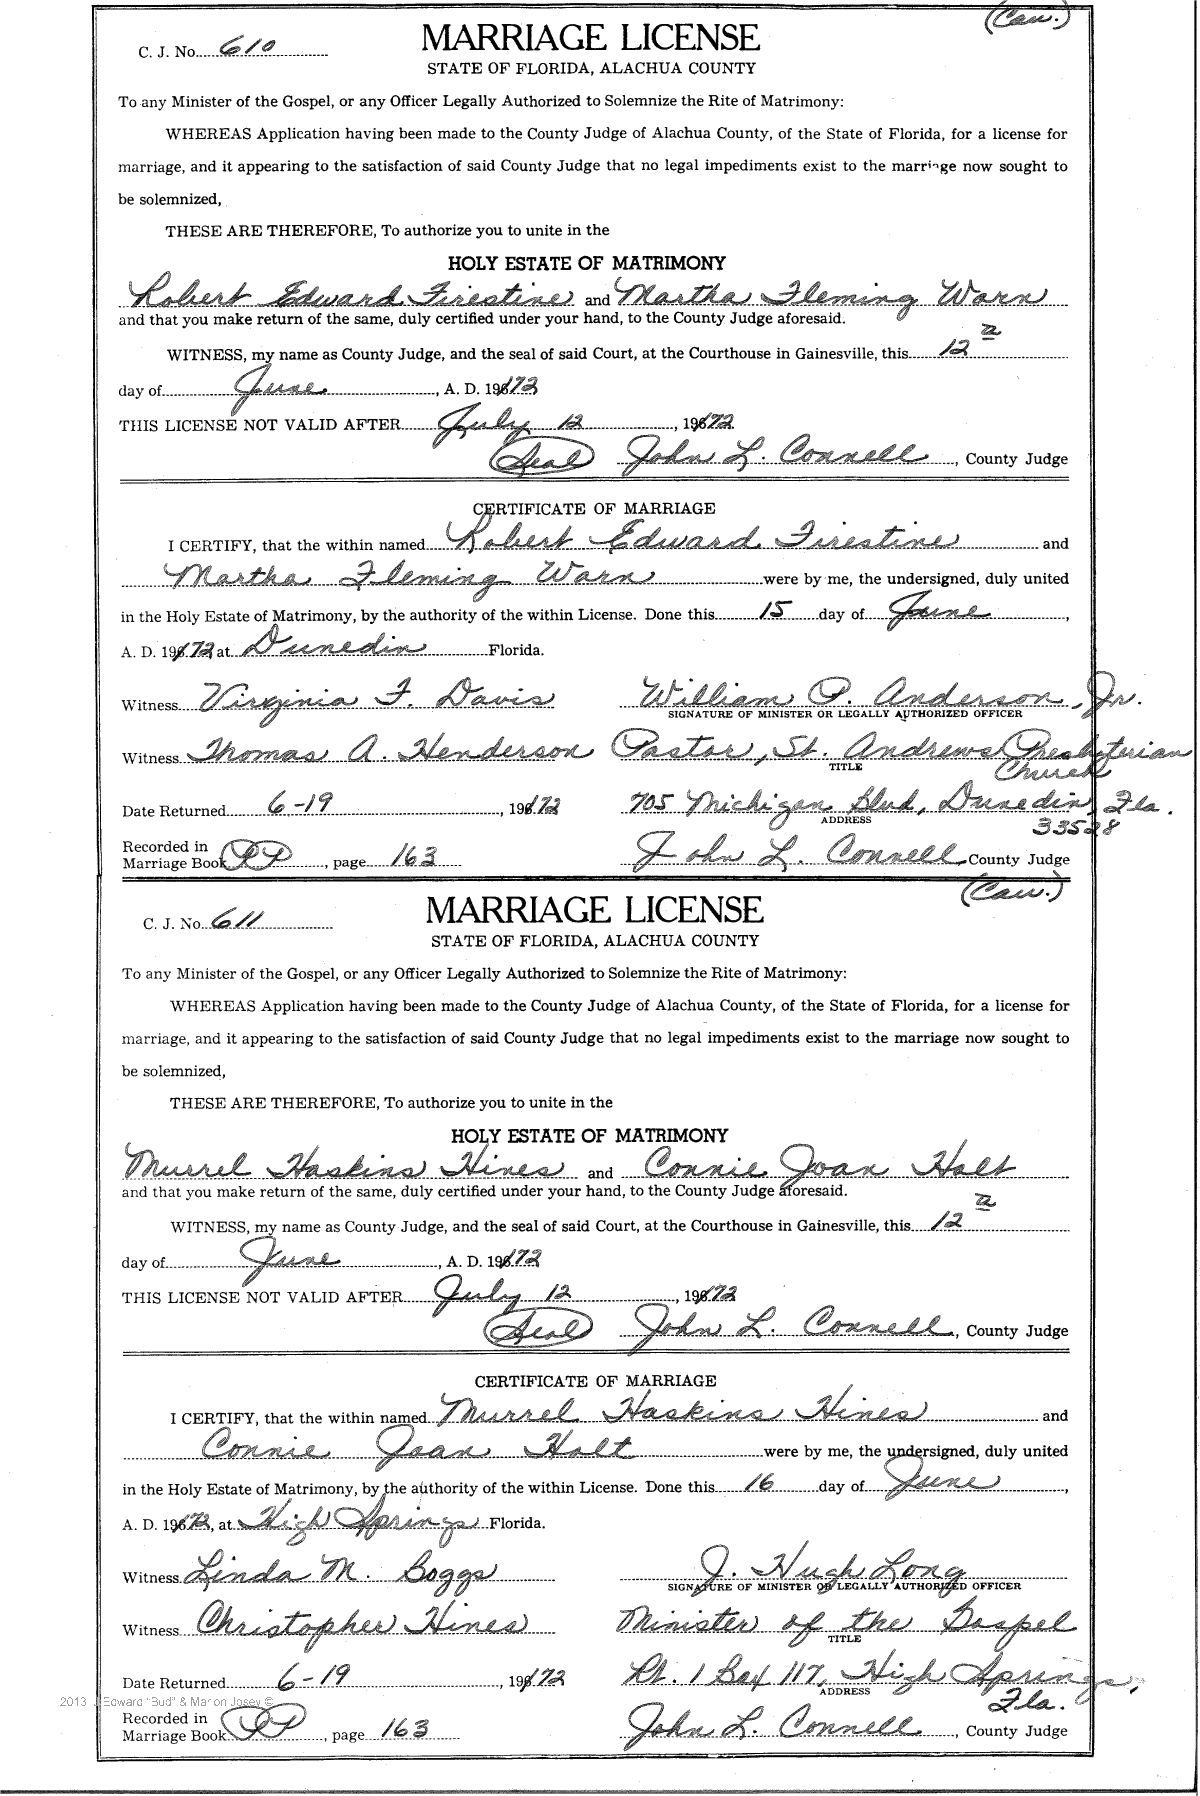 (Cau.)
C. J. No. 610
MARRIAGE LICENSE
STATE OF FLORIDA, ALACHUA COUNTY
To any Minister of the Gospel, or any Officer Legally Authorized to Solemnize the Rite of Matrimony:
WHEREAS Application having been made to the County Judge of Alachua County, of the State of Florida, for a license for
marriage, and it appearing to the satisfaction of said County Judge that no legal impediments exist to the marriage now sought to
be solemnized,
THESE ARE THEREFORE, To authorize you to unite in the
HOLY ESTATE OF MATRIMONY
Robert Edward Firestine and Martha Fleming Warn
and that you make return of the same, duly certified under your hand, to the County Judge aforesaid.
WITNESS, my name as County Judge, and the seal of said Court, at the Courthouse in Gainesville, this 12
day of June, A. D. 1972
THIS LICENSE NOT VALID AFTER July 12, 1972
(Seal) John L. Connell, County Judge
CERTIFICATE OF MARRIAGE
I CERTIFY, that the within named Robert Edward Firestine and
Martha Fleming Warn were by me, the undersigned, duly united
in the Holy Estate of Matrimony, by the authority of the within License. Done this 15 day of June,
A. D. 1972, at Dunedin Florida.
Witness Virginia F. Davis William P. Anderson, Jr.
SIGNATURE OF MINISTER OR LEGALLY AUTHORIZED OFFICER
Witness Thomas A. Henderson Pastor, St. Andrews Presbyterian
TITLE Church
Date Returned 6-19, 1972 705 Michigan Blvd, Dunedin, Fla.
ADDRESS 33528
Recorded in
Marriage Book PP, page 163 John L. Connell County Judge
(Cau.)
C. J. No. 611
MARRIAGE LICENSE
STATE OF FLORIDA, ALACHUA COUNTY
To any Minister of the Gospel, or any Officer Legally Authorized to Solemnize the Rite of Matrimony:
WHEREAS Application having been made to the County Judge of Alachua County, of the State of Florida, for a license for
marriage, and it appearing to the satisfaction of said County Judge that no legal impediments exist to the marriage now sought to
be solemnized,
THESE ARE THEREFORE, To authorize you to unite in the
HOLY ESTATE OF MATRIMONY
Murrel Haskins Hines and Connie Joan Holt
and that you make return of the same, duly certified under your hand, to the County Judge aforesaid.
WITNESS, my name as County Judge, and the seal of said Court, at the Courthouse in Gainesville, this 12
day of June, A. D. 1972
THIS LICENSE NOT VALID AFTER July 12, 1972
(Seal) John L. Connell, County Judge
CERTIFICATE OF MARRIAGE
I CERTIFY, that the within named Murrel Haskins Hines and
Connie Joan Holt were by me, the undersigned, duly united
in the Holy Estate of Matrimony, by the authority of the within License. Done this 16 day of June,
A. D. 1972, at High Springs Florida.
Witness Linda M. Boggs J. Hugh Long
SIGNATURE OF MINISTER OR LEGALLY AUTHORIZED OFFICER
Witness Christopher Hines Minister of the Gospel
TITLE
Date Returned 6-19, 1972 Rt. 1 Box 117, High Springs,
ADDRESS Fla.
2013 J Edward "Bud" & Marion Josey ©
Recorded in
Marriage Book PP, page 163 John L. Connell, County Judge